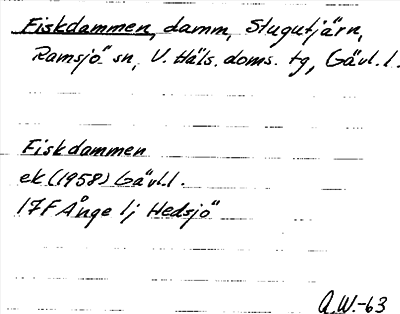 Fiskdammen, damm, Slugutjärn,
Ramsjö sn, V. Häls. doms. tg, Gävl. l.
Fiskdammen
ek (1958) Gävl. l.
17F Ånge 1j Hedsjö
A.W.-63